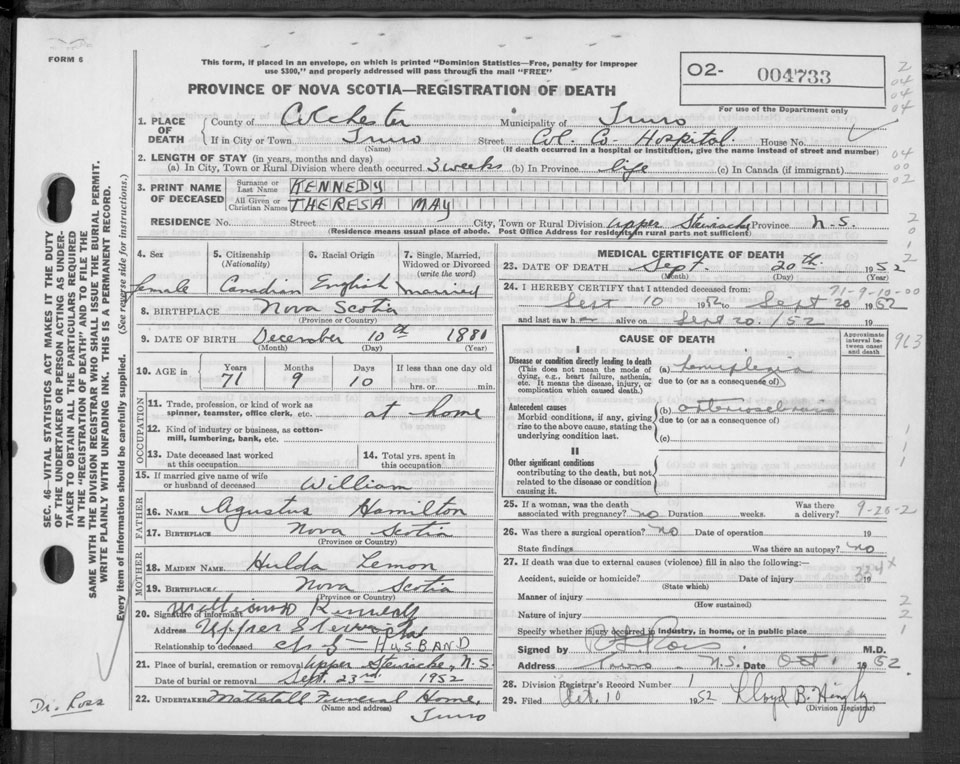 FORM 6
This form, if placed in an envelope, on which is printed "Dominion Statistics—Free, penalty for improper
use $300," and properly addressed will pass through the mail "FREE"
PROVINCE OF NOVA SCOTIA—REGISTRATION OF DEATH
O2- 004733
For use of the Department only
1. PLACE OF DEATH
County of Colchester Municipality of Truro
If in City or Town Truro Street Col. Co. Hospital. House No.
(Name) (If death occurred in a hospital or institution, give the name instead of street and number)
2. LENGTH OF STAY (in years, months and days)
(a) In City, Town or Rural Division where death occurred 3 weeks (b) In Province life (c) In Canada (if immigrant)
3. PRINT NAME OF DECEASED
Surname or Last Name KENNEDY
All Given or Christian Names THERESA MAY
RESIDENCE No. Street City, Town or Rural Division Upper Stewiacke Province N.S.
(Residence means usual place of abode. Post Office Address for residents in rural parts not sufficient)
4. Sex female
5. Citizenship (Nationality) Canadian
6. Racial Origin English
7. Single, Married, Widowed or Divorced (write the word) married
8. BIRTHPLACE Nova Scotia
(Province or Country)
9. DATE OF BIRTH December 10th 1880
(Month) (Day) (Year)
10. AGE in Years 71 Months 9 Days 10 If less than one day old
hrs. or min.
OCCUPATION
11. Trade, profession, or kind of work as
spinner, teamster, office clerk, etc. at home
12. Kind of industry or business, as cotton-
mill, lumbering, bank, etc.
13. Date deceased last worked
at this occupation
14. Total yrs. spent in
this occupation
15. If married give name of wife
or husband of deceased William
FATHER
16. NAME Agustus Hamilton
17. BIRTHPLACE Nova Scotia
(Province or Country)
MOTHER
18. MAIDEN NAME Hulda Lemon
19. BIRTHPLACE Nova Scotia
(Province or Country)
20. Signature of informant Kennedy
Address Upper Stewiacke
Relationship to deceased HUSBAND
21. Place of burial, cremation or removal Upper Stewiacke, N.S.
Date of burial or removal Sept. 23rd 1952
22. UNDERTAKER Mattatall Funeral Home,
(Name and address) Truro
MEDICAL CERTIFICATE OF DEATH
23. DATE OF DEATH Sept. 20th 1952
(Month) (Day) (Year)
71-9-10-00
24. I HEREBY CERTIFY that I attended deceased from:
Sept 10 1952 to Sept 20 1952
and last saw her alive on Sept 20/52 19
CAUSE OF DEATH
Approximate interval between onset and death
963
I
Disease or condition directly leading to death
(This does not mean the mode of
dying, e.g., heart failure, asthenia,
etc. It means the disease, injury, or
complication which caused death.)
(a) hemiplegia
due to (or as a consequence of)
Antecedent causes
Morbid conditions, if any, giving
rise to the above cause, stating the
underlying condition last.
(b)
due to (or as a consequence of)
(c)
II
Other significant conditions
contributing to the death, but not
related to the disease or condition
causing it.
25. If a woman, was the death
associated with pregnancy? no Duration weeks. Was there
a delivery?
9-20-2
26. Was there a surgical operation? no Date of operation 19
State findings Was there an autopsy? no
27. If death was due to external causes (violence) fill in also the following:
334X
Accident, suicide or homicide? Date of injury 19
(State which)
Manner of injury
(How sustained)
Nature of injury
Specify whether injury occurred in industry, in home, or in public place
Signed by Ross M.D.
Address Truro N.S. Date Oct 1 1952
28. Division Registrar's Record Number 1
29. Filed Oct. 10 1952 Lloyd B. Hingley
(Division Registrar)
2
04
04
04
04
00
02
2
0
1
2
1
1
1
2
2
1
SEC. 46—VITAL STATISTICS ACT MAKES IT THE DUTY
OF THE UNDERTAKER OR PERSON ACTING AS UNDER-
TAKER TO OBTAIN ALL THE PARTICULARS REQUIRED
IN THE "REGISTRATION OF DEATH" AND TO FILE THE
SAME WITH THE DIVISION REGISTRAR WHO SHALL ISSUE THE BURIAL PERMIT.
WRITE PLAINLY WITH UNFADING INK. THIS IS A PERMANENT RECORD.
Every item of information should be carefully supplied. (See reverse side for instructions.)
Dr. Ross